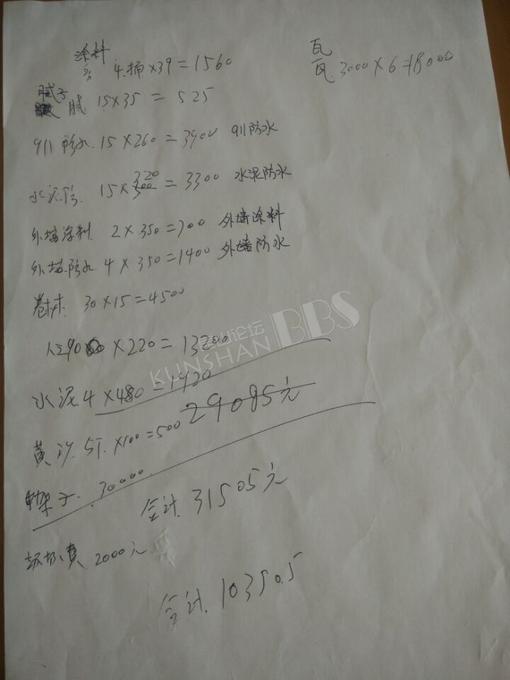 涂料
4桶×39=1560
瓦
瓦3000×6=18000
腻子
腻 15×35=525
911防水 15×260=3900 911防水
320
水泥防 15×300=3300 水泥防水
外墙涂料 2×350=700 外墙涂料
外墙防水 4×350=1400 外墙防水
卷材 30×15=4500
人工90 ×220=13200
水泥4×480=1920
29085元
黄沙 5T.×100=500
架子 30000
合计 31505元
2000元
合计 103505
KUNSHAN论坛BBS